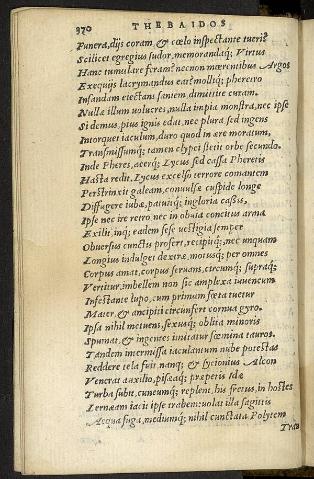 970 THEBAIDOS
Funera, dijs coram, & cœlo inspectante tueris?
Scilicet egregius sudor, memorandaq; Virtus
Hanc tumulare feram? nec non mœrentibus Argos
Exequijs lacrymandus eat? molliq; pheretro
Insandam eiectans saniem? dimittite curam.
Nullæ illum volucres, nulla impia monstra, nec ipse
Si demus, pius ignis edat, nec plura sed ingens
Intorquet iaculum, duro quod in ære moratum,
Transmissumq; tamen clypei stetit orbe secundo.
Inde Pheres, acerq; Lycus sed cassa Pheretis
Hasta redit. Lycus excelso terrore comantem
Perstrinxit galeam, conuulsæ cuspide longe
Diffugere iubæ, patuitq; ingloria cassis,
Ipse nec ire retro nec in obuia concitus arma
Exilit, inq; eadem sese vestigia semper
Obuersus cunctis profert, recipitq; nec unquam
Longius indulget dextræ, motusq; per omnes
Corpus amat, corpus seruans, circumq; supraq;
Vertitur, imbellem non sic amplexa iuuencum
Infestante lupo, cum primum fœta tuetur
Mater, & ancipiti circunfert cornua gyro.
Ipsa nihil metuens, sexusq; oblita minoris
Spumat, & ingentes imitatur fœmina tauros.
Tandem intermissa iaculantum nube potestas
Reddere tela fuit. nanq; & Sycionius Alcon
Venerat auxilio, pisæaq; præpetis Idæ
Turba subit, cuneumq; replent, his fretus, in hostes
Lernæam iacit ipse trabem: volat illa sagittis
Aequa fuga, mediumq; nihil cunctata Polytem